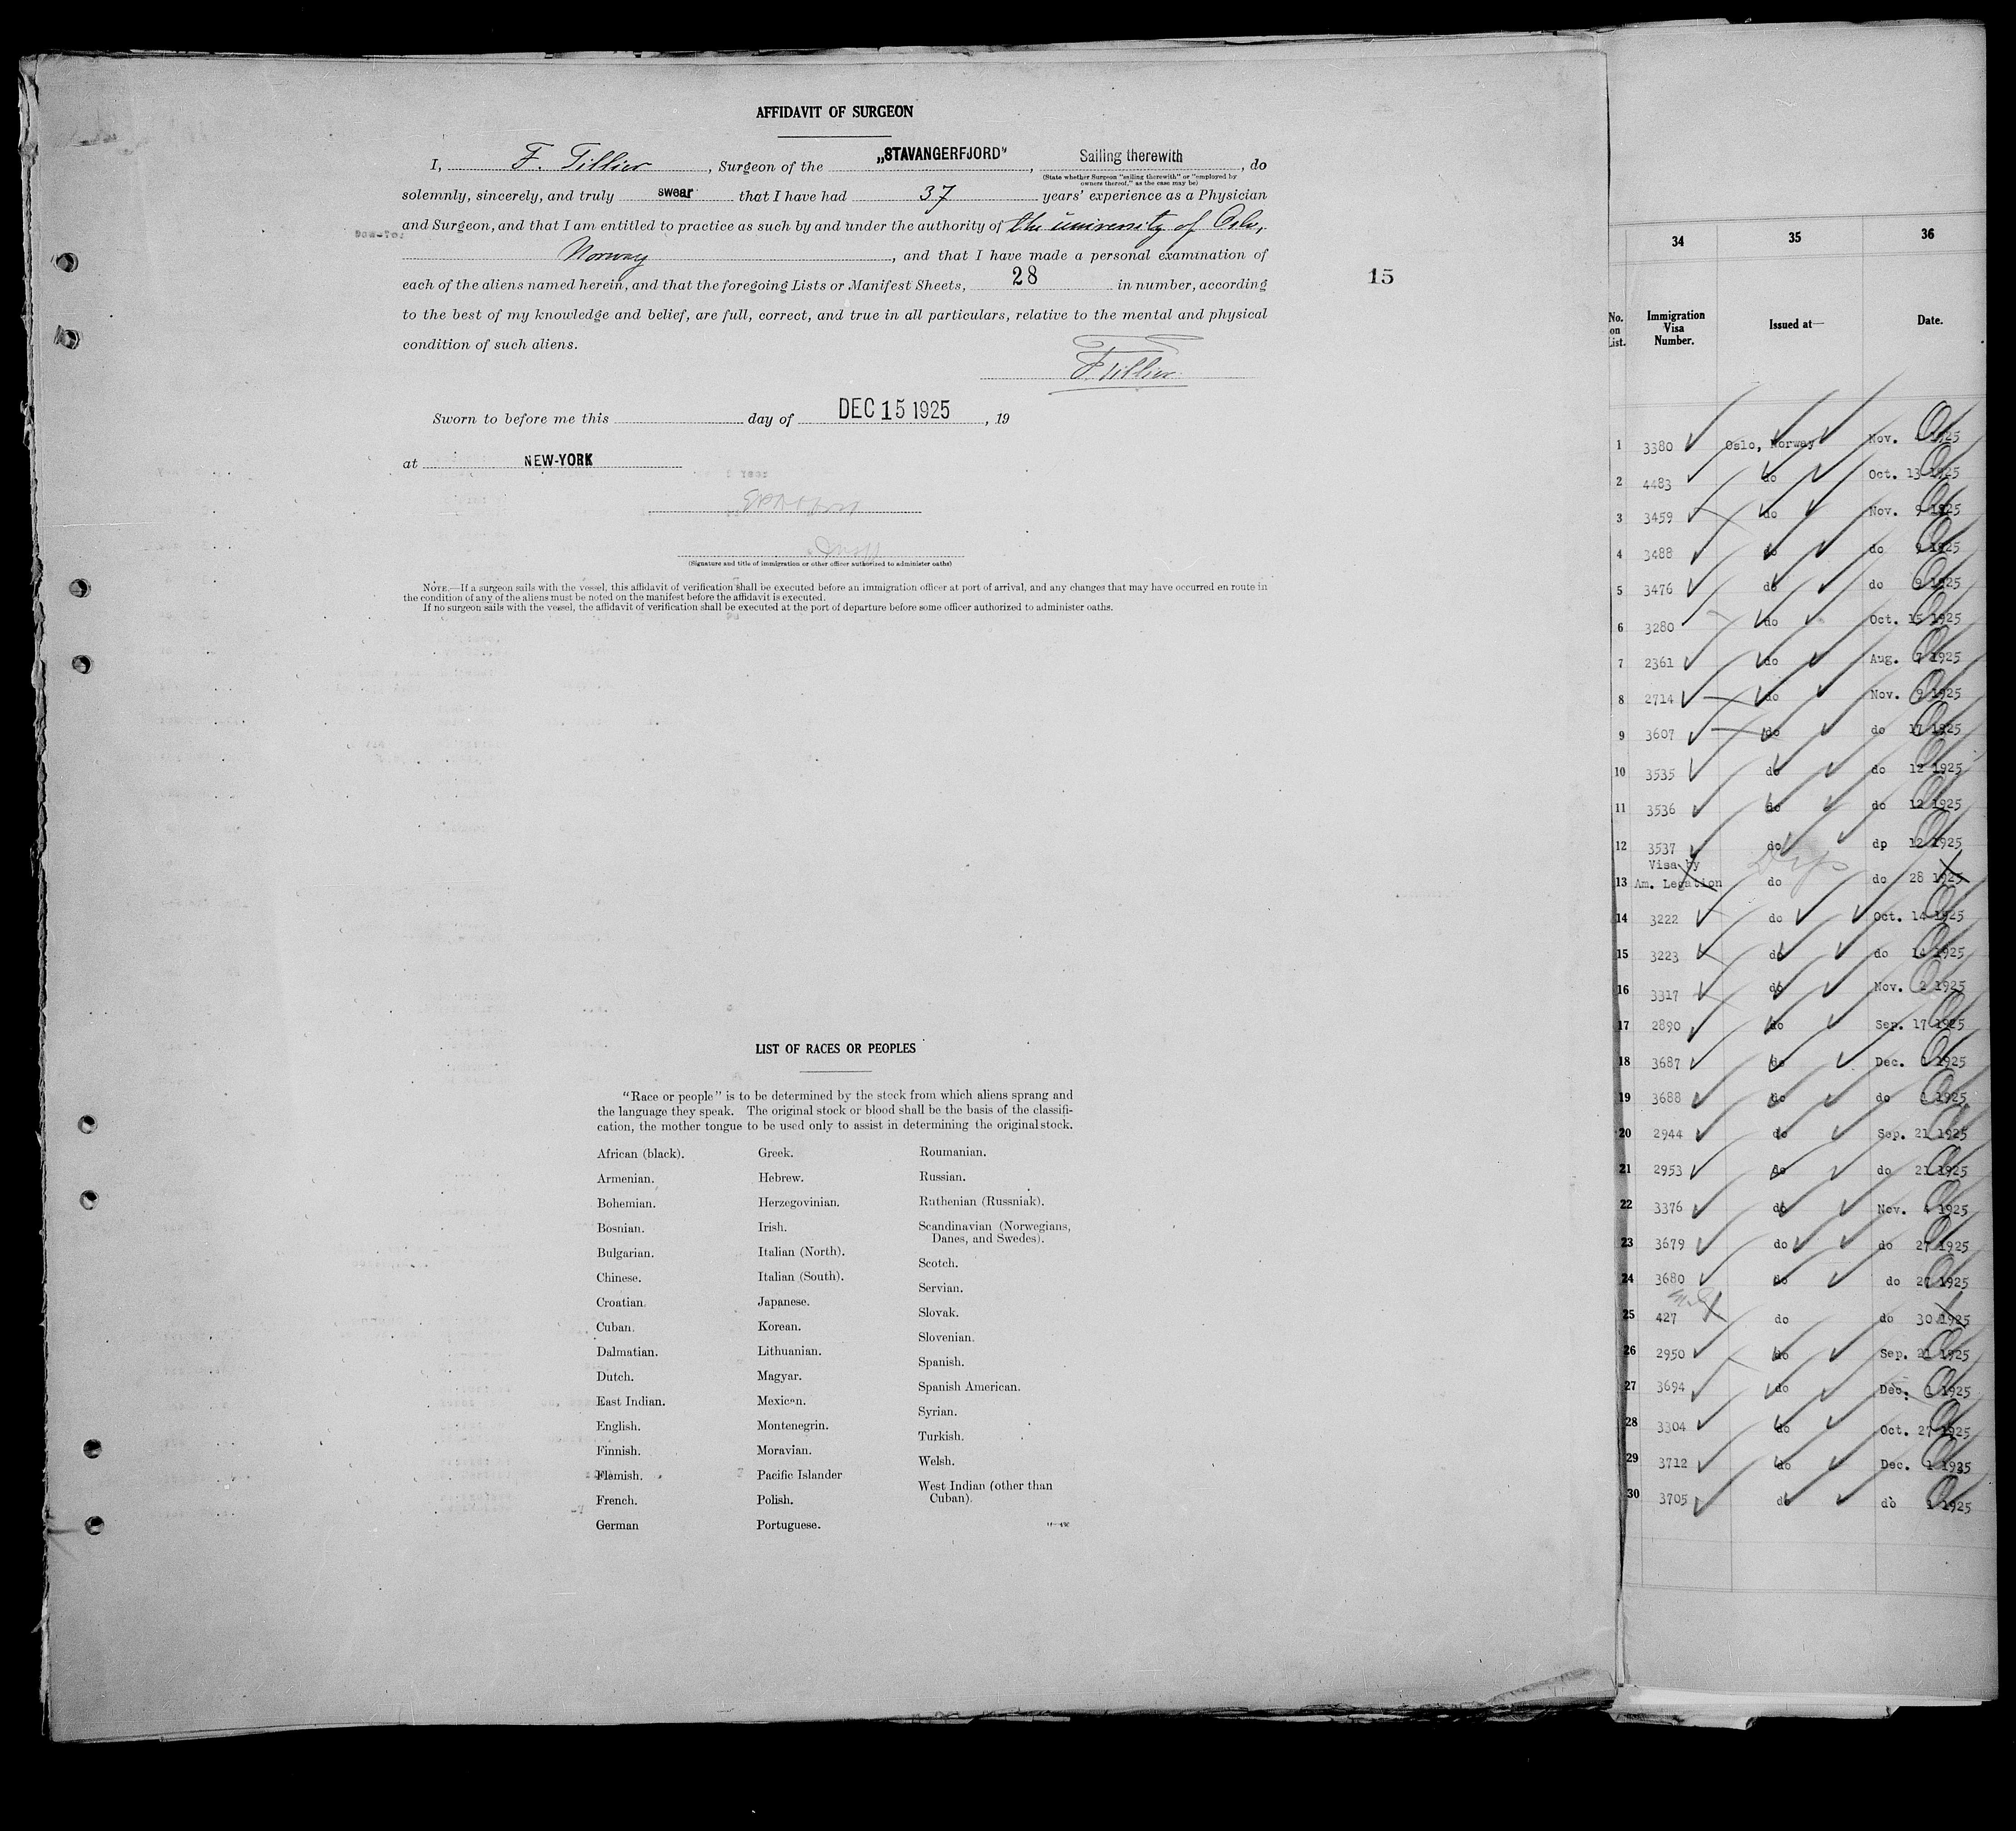 AFFIDAVIT OF SURGEON
I, F. Tillier, Surgeon of the „STAVANGERFJORD", Sailing therewith, do
(State whether Surgeon "sailing therewith" or "employed by
owners thereof," as the case may be)
solemnly, sincerely, and truly swear that I have had 37 years' experience as a Physician
and Surgeon, and that I am entitled to practice as such by and under the authority of the university of Oslo,
Norway, and that I have made a personal examination of
each of the aliens named herein, and that the foregoing Lists or Manifest Sheets, 28 in number, according
to the best of my knowledge and belief, are full, correct, and true in all particulars, relative to the mental and physical
condition of such aliens.
F Tillier
Sworn to before me this day of DEC 15 1925, 19
at NEW-YORK
(Signature and title of immigration or other officer authorized to administer oaths)
NOTE.—If a surgeon sails with the vessel, this affidavit of verification shall be executed before an immigration officer at port of arrival, and any changes that may have occurred en route in
the condition of any of the aliens must be noted on the manifest before the affidavit is executed.
If no surgeon sails with the vessel, the affidavit of verification shall be executed at the port of departure before some officer authorized to administer oaths.
15
LIST OF RACES OR PEOPLES
"Race or people" is to be determined by the stock from which aliens sprang and
the language they speak. The original stock or blood shall be the basis of the classifi-
cation, the mother tongue to be used only to assist in determining the original stock.
African (black).
Armenian.
Bohemian.
Bosnian.
Bulgarian.
Chinese.
Croatian.
Cuban.
Dalmatian.
Dutch.
East Indian.
English.
Finnish.
Flemish.
French.
German
Greek.
Hebrew.
Herzegovinian.
Irish.
Italian (North).
Italian (South).
Japanese.
Korean.
Lithuanian.
Magyar.
Mexican.
Montenegrin.
Moravian.
Pacific Islander
Polish.
Portuguese.
Roumanian.
Russian.
Ruthenian (Russniak).
Scandinavian (Norwegians,
Danes, and Swedes).
Scotch.
Servian.
Slovak.
Slovenian.
Spanish.
Spanish American.
Syrian.
Turkish.
Welsh.
West Indian (other than
Cuban).
34 35 36
No. on List. Immigration Visa Number. Issued at— Date.
1 3380 Oslo, Norway Nov. 1925
2 4483 do Oct. 13 1925
3 3459 do Nov. 9 1925
4 3488 do do 9 1925
5 3476 do do 9 1925
6 3280 do Oct. 15 1925
7 2361 do Aug. 7 1925
8 2714 do Nov. 9 1925
9 3607 do do 17 1925
10 3535 do do 12 1925
11 3536 do do 12 1925
12 3537 do dp 12 1925
Visa by
13 Am. Legation do do 28 1925
14 3222 do Oct. 14 1925
15 3223 do do 14 1925
16 3317 do Nov. 2 1925
17 2890 do Sep. 17 1925
18 3687 do Dec. 1 1925
19 3688 do do 1 1925
20 2944 do Sep. 21 1925
21 2953 do do 21 1925
22 3376 do Nov. 4 1925
23 3679 do do 27 1925
24 3680 do do 27 1925
25 427 do do 30 1925
26 2950 do Sep. 21 1925
27 3694 do Dec. 1 1925
28 3304 do Oct. 27 1925
29 3712 do Dec. 1 1925
30 3705 do do 1 1925